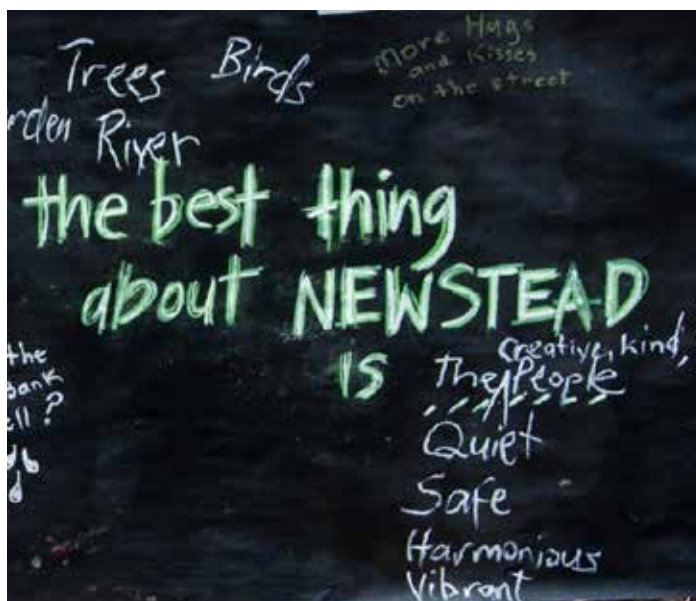 Trees Birds
more Hugs
and Kisses
on the street
rden River
the best thing
about NEWSTEAD
is
Creative, kind,
The People
the
Bank
ell?
Quiet
Safe
Harmonious
Vibrant